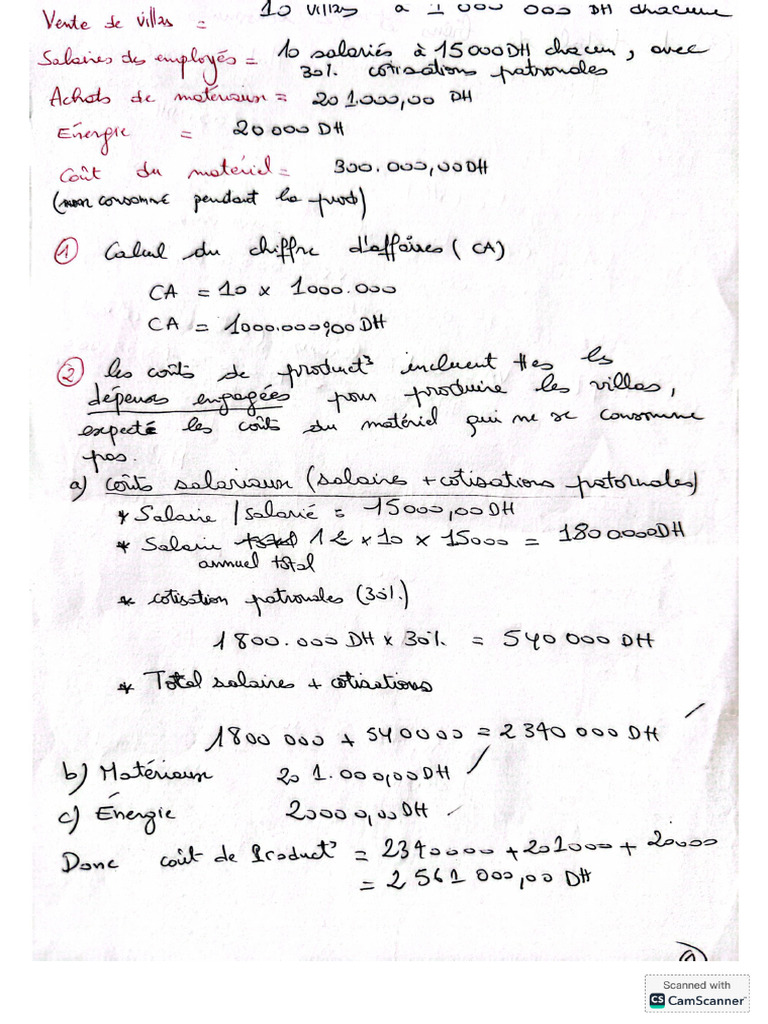 Vente de villas = 10 villas à 1 000 000 DH chacune
Salaires des employés = 10 salariés à 15000DH chacun, avec
30% cotisations patronales
Achats de matériaux = 201.000,00 DH
Energie = 20 000 DH
Coût du matériel = 300.000,00DH
(non consommé pendant la prod)
① Calcul du chiffre d'affaires (CA)
CA = 10 x 1000.000
CA = 1000.000,00 DH
② les coûts de product° incluent ttes les
dépenses engagées pour produire les villas,
expecté les coûts du matériel qui ne se consomme
pas.
a) coûts salariaux (salaire + cotisations patornales)
* Salaire / salarié = 15000,00 DH
* Salaire total 12 x 10 x 15000 = 1800000DH
annuel total
* cotisation patronales (30%)
1800.000 DH x 30% = 540 000 DH
* Total salaires + cotisations
1800 000 + 540000 = 2340 000 DH
b) Matériaux 201.000,00DH
c) Énergie 20000,00DH
Donc coût de Product° = 2340000 + 201000 + 20000
= 2 561 000,00 DH
Scanned with
CS CamScanner